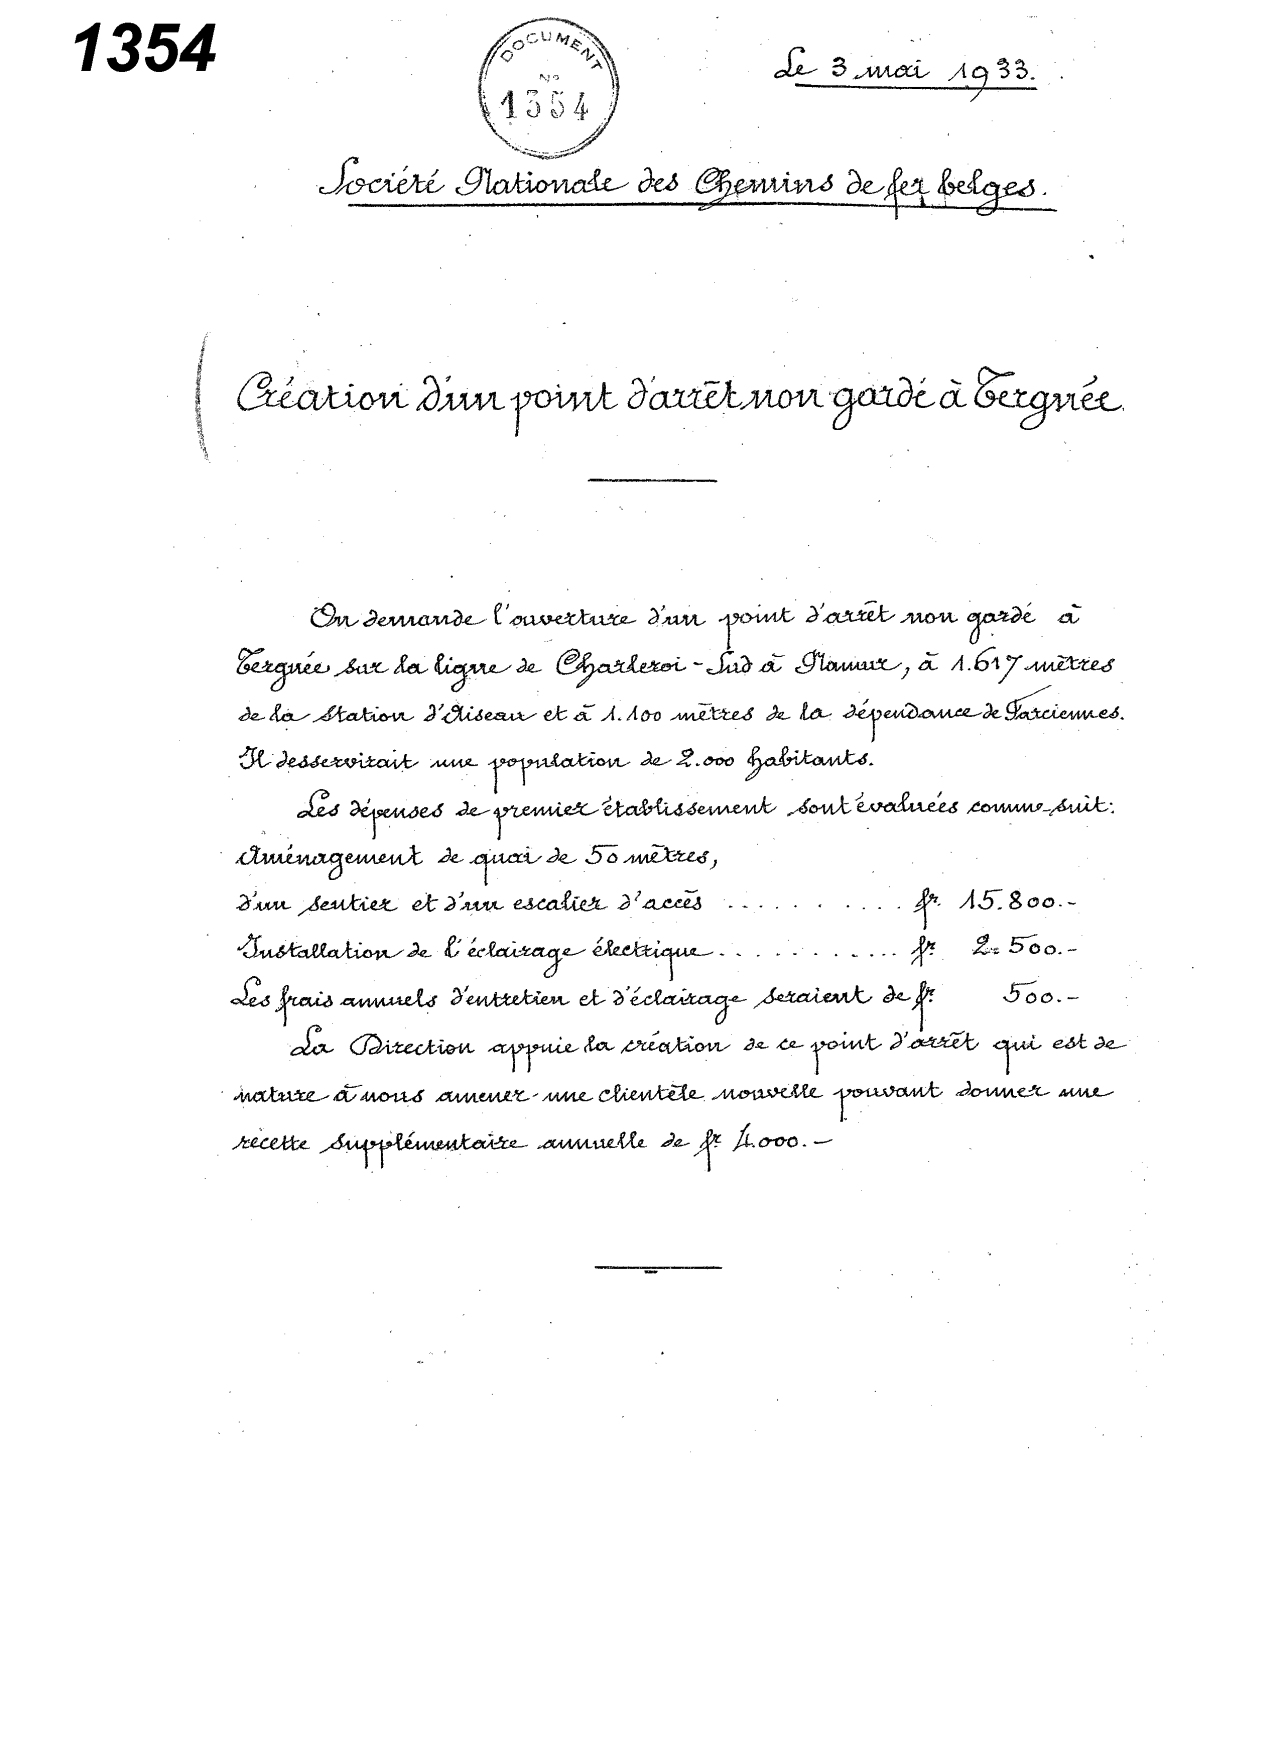 1354
DOCUMENT
No
1354
Le 3 mai 1933.
Société Nationale des Chemins de fer belges.
Création d'un point d'arrêt non gardé à Tergnée.
On demande l'ouverture d'un point d'arrêt non gardé à
Tergnée sur la ligne de Charleroi-Sud à Namur, à 1.617 mètres
de la station d'Aiseau et à 1.100 mètres de la dépendance de Farciennes.
Il desservirait une population de 2.000 habitants.
Les dépenses de premier établissement sont évaluées comme suit:
Aménagement de quai de 50 mètres,
d'un sentier et d'un escalier d'accès .......... fr. 15.800.-
Installation de l'éclairage électrique............ fr. 2.500.-
Les frais annuels d'entretien et d'éclairage seraient de fr. 500.-
La Direction appuie la création de ce point d'arrêt qui est de
nature à nous amener une clientèle nouvelle pouvant donner une
recette supplémentaire annuelle de fr. 4.000.-